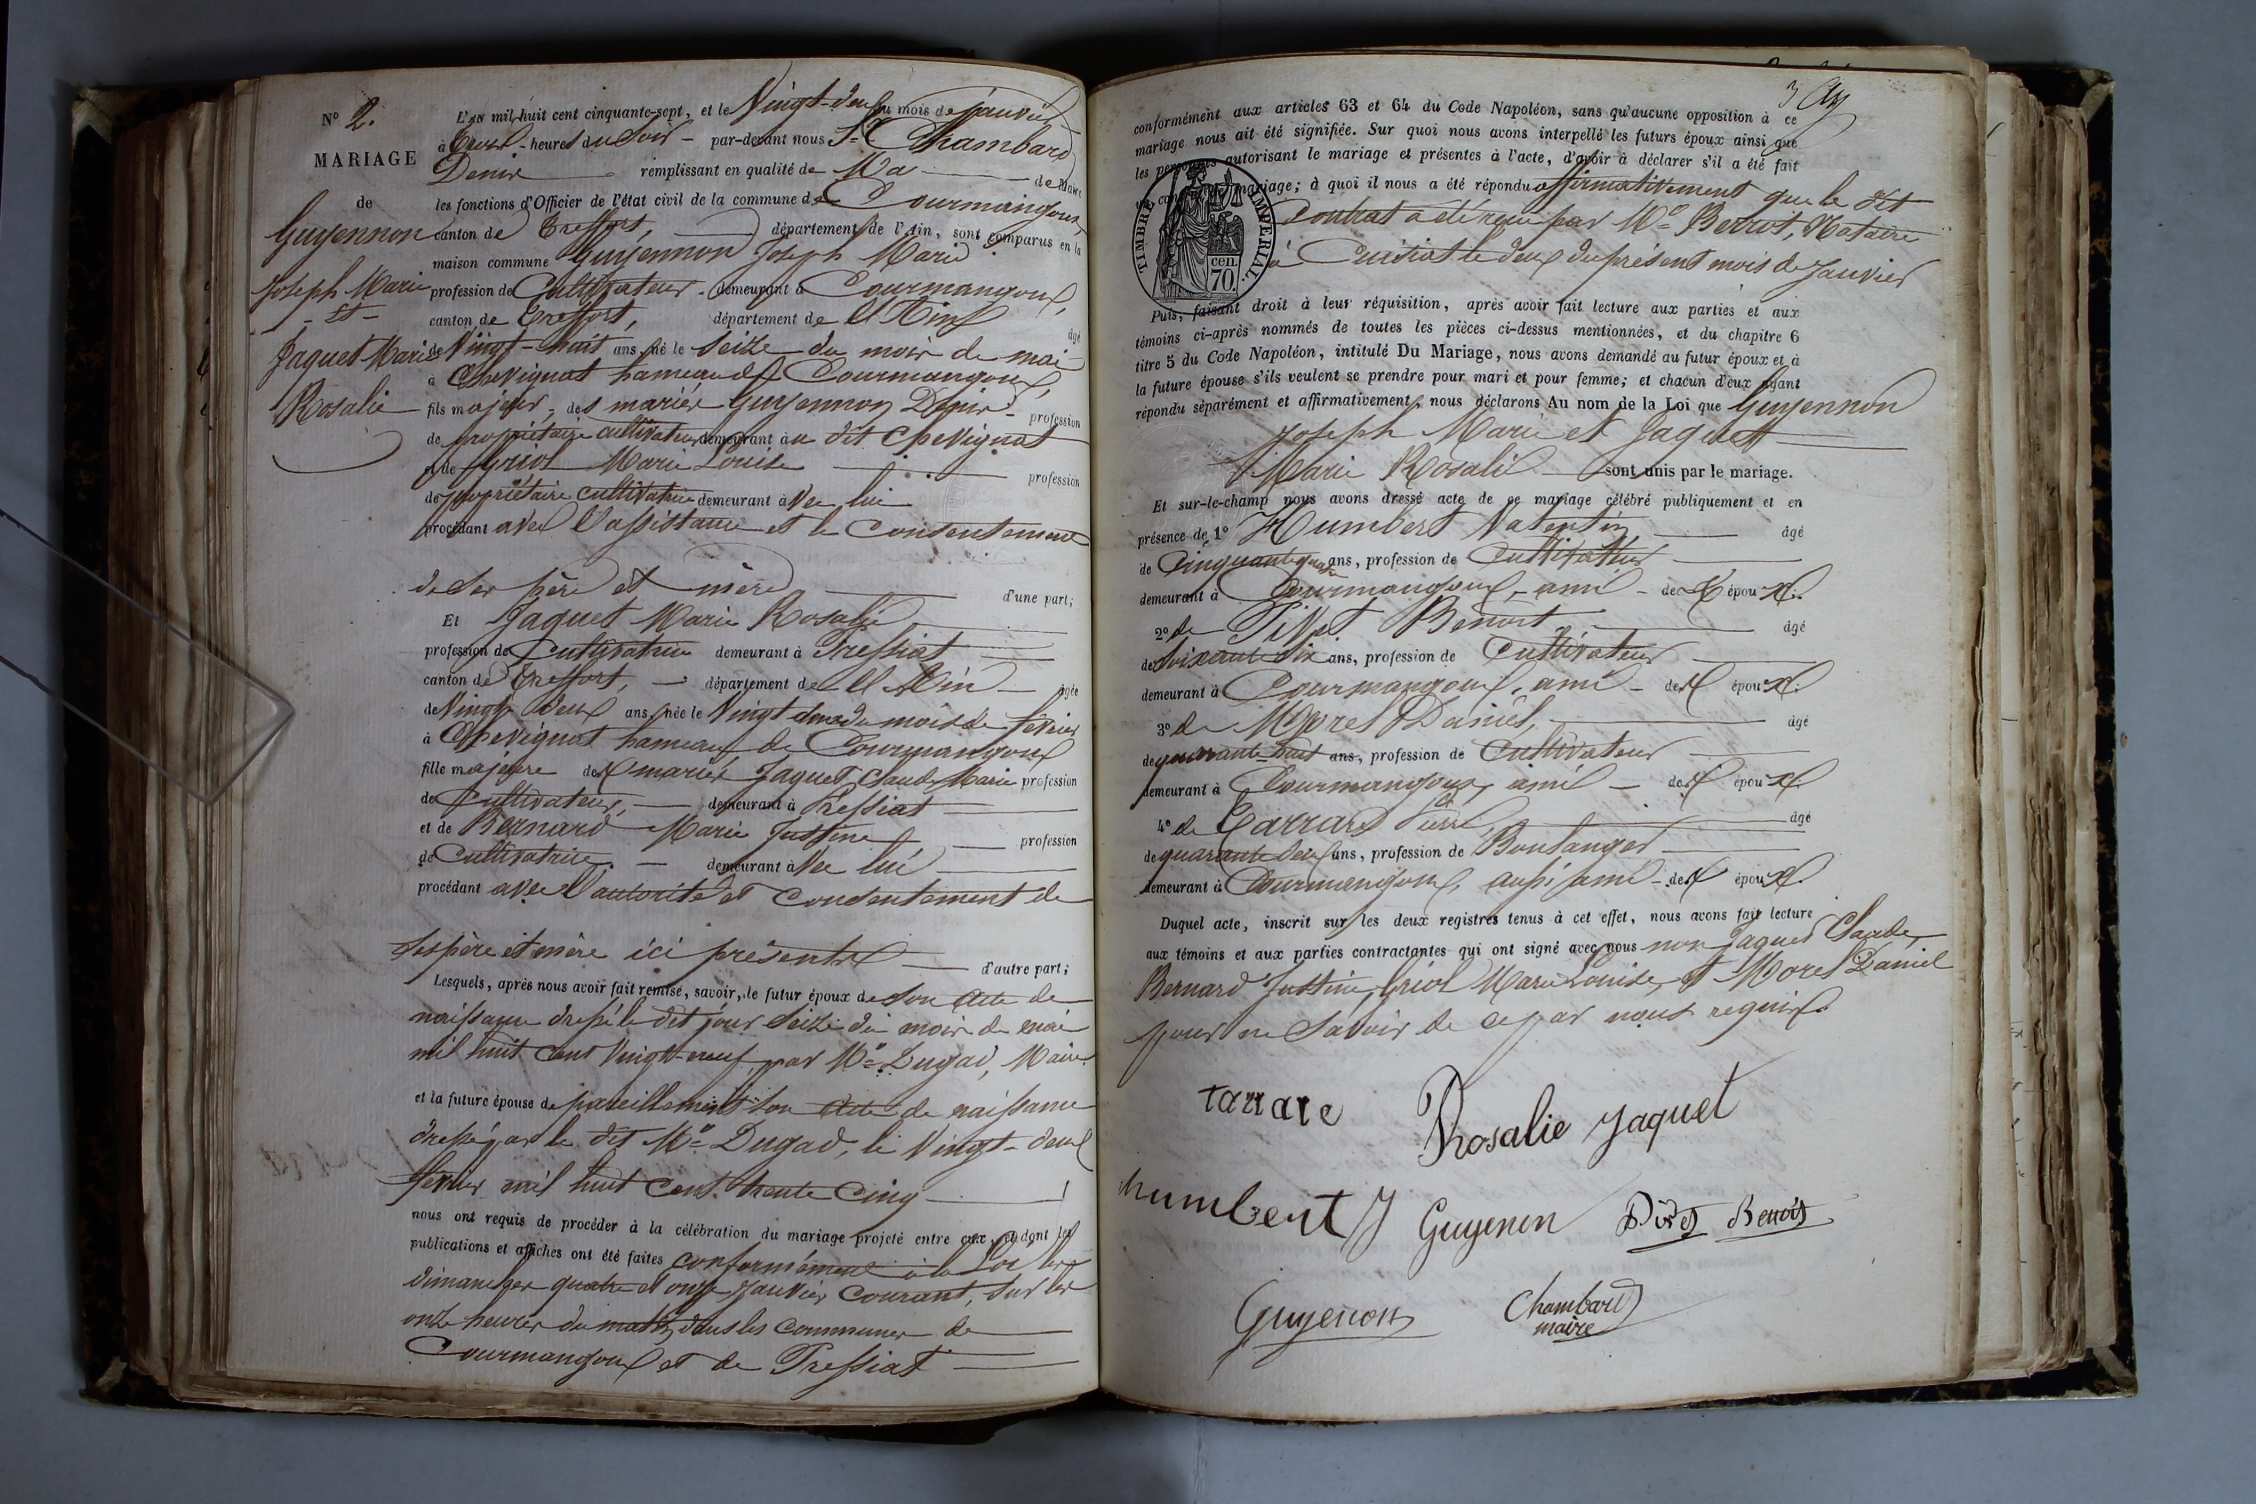 N° 2.
MARIAGE
de
Guyennon
Joseph Marie
- Et -
Jaquet Marie
Rosalie
L'an mil huit cent cinquante-sept, et le Vingt-deux du mois de janvier
à heures du Soir - par-devant nous Sr Chambard
Denis remplissant en qualité de Ma de Maire
les fonctions d'Officier de l'état civil de la commune de Courmangoux,
canton de Treffort, département de l'Ain, sont comparus en la
maison commune Guyennon Joseph Marie
profession de Cultivateur - demeurant à Courmangoux,
canton de Treffort, département de l'Ain âgé
de Vingt-huit ans, né le Seize du mois de mai
à Chevignat hameau de Courmangoux,
fils majeur - des mariés Guyennon Denis - profession
de propriétaire cultivateur demeurant au dit Chevignat
et de Griol Marie Louise profession
de propriétaire cultivatrice demeurant avec lui
procédant avec l'assistance et le consentement
de ses père et mère d'une part;
Et Jaquet Marie Rosalie
profession de Cultivatrice demeurant à Pressiat
canton de Treffort, - département de l'Ain - âgée
de Vingt deux ans, née le Vingt deux du mois de février
à Chevignat hameau de Courmangoux
fille majeure des mariés Jaquet Claude Marie profession
de Cultivateur, - demeurant à Pressiat
et de Bernard Marie Justine profession
de Cultivatrice. - demeurant avec lui
procédant avec l'autorité et consentement de
ses père et mère ici présents d'autre part;
Lesquels, après nous avoir fait remise, savoir, le futur époux de Son Acte de
naissance dressé le dit jour Seize du mois de mai
mil huit cent vingt-neuf, par Mr Dugad, Maire
et la future épouse de pareillement son Acte de naissance
dressé par le dit Mr Dugad, le Vingt-deux
février mil huit cent trente cinq
nous ont requis de procéder à la célébration du mariage projeté entre eux, et dont les
publications et affiches ont été faites conformément à la Loi les
dimanches quatre et onze Janvier courant, sur les
onze heures du matin, dans les communes de
Courmangoux et de Pressiat
3
conformément aux articles 63 et 64 du Code Napoléon, sans qu'aucune opposition à ce
mariage nous ait été signifiée. Sur quoi nous avons interpellé les futurs époux ainsi que
les personnes autorisant le mariage et présentes à l'acte, d'avoir à déclarer s'il a été fait
mariage; à quoi il nous a été répondu affirmativement que le dit
Contrat a été reçu par Me Perrot, Notaire
à Cuisiat le deux du présent mois de Janvier
TIMBRE IMPERIAL.
cen
70.
Puis, faisant droit à leur réquisition, après avoir fait lecture aux parties et aux
témoins ci-après nommés de toutes les pièces ci-dessus mentionnées, et du chapitre 6
titre 5 du Code Napoléon, intitulé Du Mariage, nous avons demandé au futur époux et à
la future épouse s'ils veulent se prendre pour mari et pour femme; et chacun d'eux ayant
répondu séparément et affirmativement, nous déclarons Au nom de la Loi que Guyennon
Joseph Marie et Jaquet
Marie Rosalie sont unis par le mariage.
Et sur-le-champ nous avons dressé acte de ce mariage célébré publiquement et en
présence de 1° Humbert Valentin âgé
de Cinquante quatre ans, profession de Cultivateur
demeurant à Courmangoux, ami - des époux.
2° de Pivet Benoit âgé
de Soixante six ans, profession de Cultivateur
demeurant à Courmangoux, ami - des époux.
3° de Morel Daniel, âgé
de quarante-huit ans, profession de Cultivateur
demeurant à Courmangoux, ami - des époux.
4° de Carrare Pierre, âgé
de quarante deux ans, profession de Boulanger
demeurant à Courmangoux, aussi ami - des époux.
Duquel acte, inscrit sur les deux registres tenus à cet effet, nous avons fait lecture
aux témoins et aux parties contractantes qui ont signé avec nous non Jaquet Claude,
Bernard Justine, Griol Marie Louise, et Morel Daniel
pour ne Savoir de ce par nous requis.
tarrare
Rosalie Jaquet
humbert
J Guyenon
Pivet Benoit
Guyenon
Chambard
maire